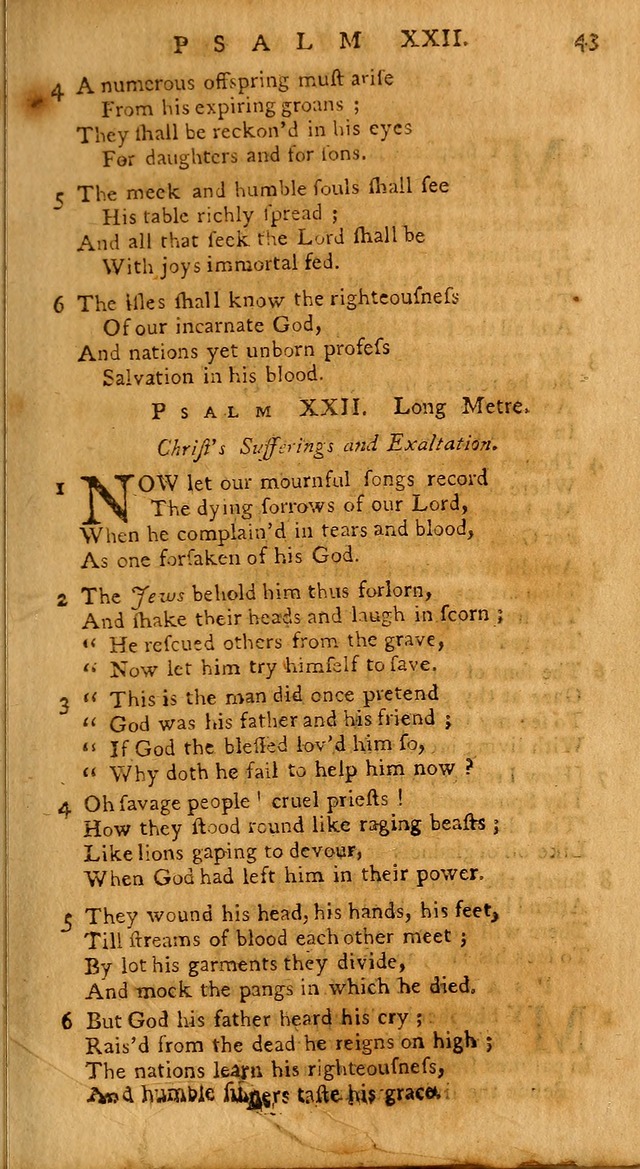 PSALM XXII. 43
4 A numerous offspring muſt ariſe
From his expiring groans ;
They ſhall be reckon'd in his eyes
For daughters and for ſons.
5 The meek and humble ſouls ſhall ſee
His table richly ſpread ;
And all that ſeek the Lord ſhall be
With joys immortal fed.
6 The iſles ſhall know the righteouſneſs
Of our incarnate God,
And nations yet unborn profeſs
Salvation in his blood.
PSALM XXII. Long Metre.
Chriſt's Sufferings and Exaltation.
1 NOW let our mournful ſongs record
The dying ſorrows of our Lord,
When he complain'd in tears and blood,
As one forſaken of his God.
2 The Jews behold him thus forlorn,
And ſhake their heads and laugh in ſcorn ;
“ He reſcued others from the grave,
“ Now let him try himſelf to ſave.
3 “ This is the man did once pretend
“ God was his father and his friend ;
“ If God the bleſſed lov'd him ſo,
“ Why doth he fail to help him now ?
4 Oh ſavage people ' cruel prieſts !
How they ſtood round like raging beaſts ;
Like lions gaping to devour,
When God had left him in their power.
5 They wound his head, his hands, his feet,
Till ſtreams of blood each other meet ;
By lot his garments they divide,
And mock the pangs in which he died.
6 But God his father heard his cry ;
Rais'd from the dead he reigns on high ;
The nations learn his righteouſneſs,
And humble ſinners taſte his grace.